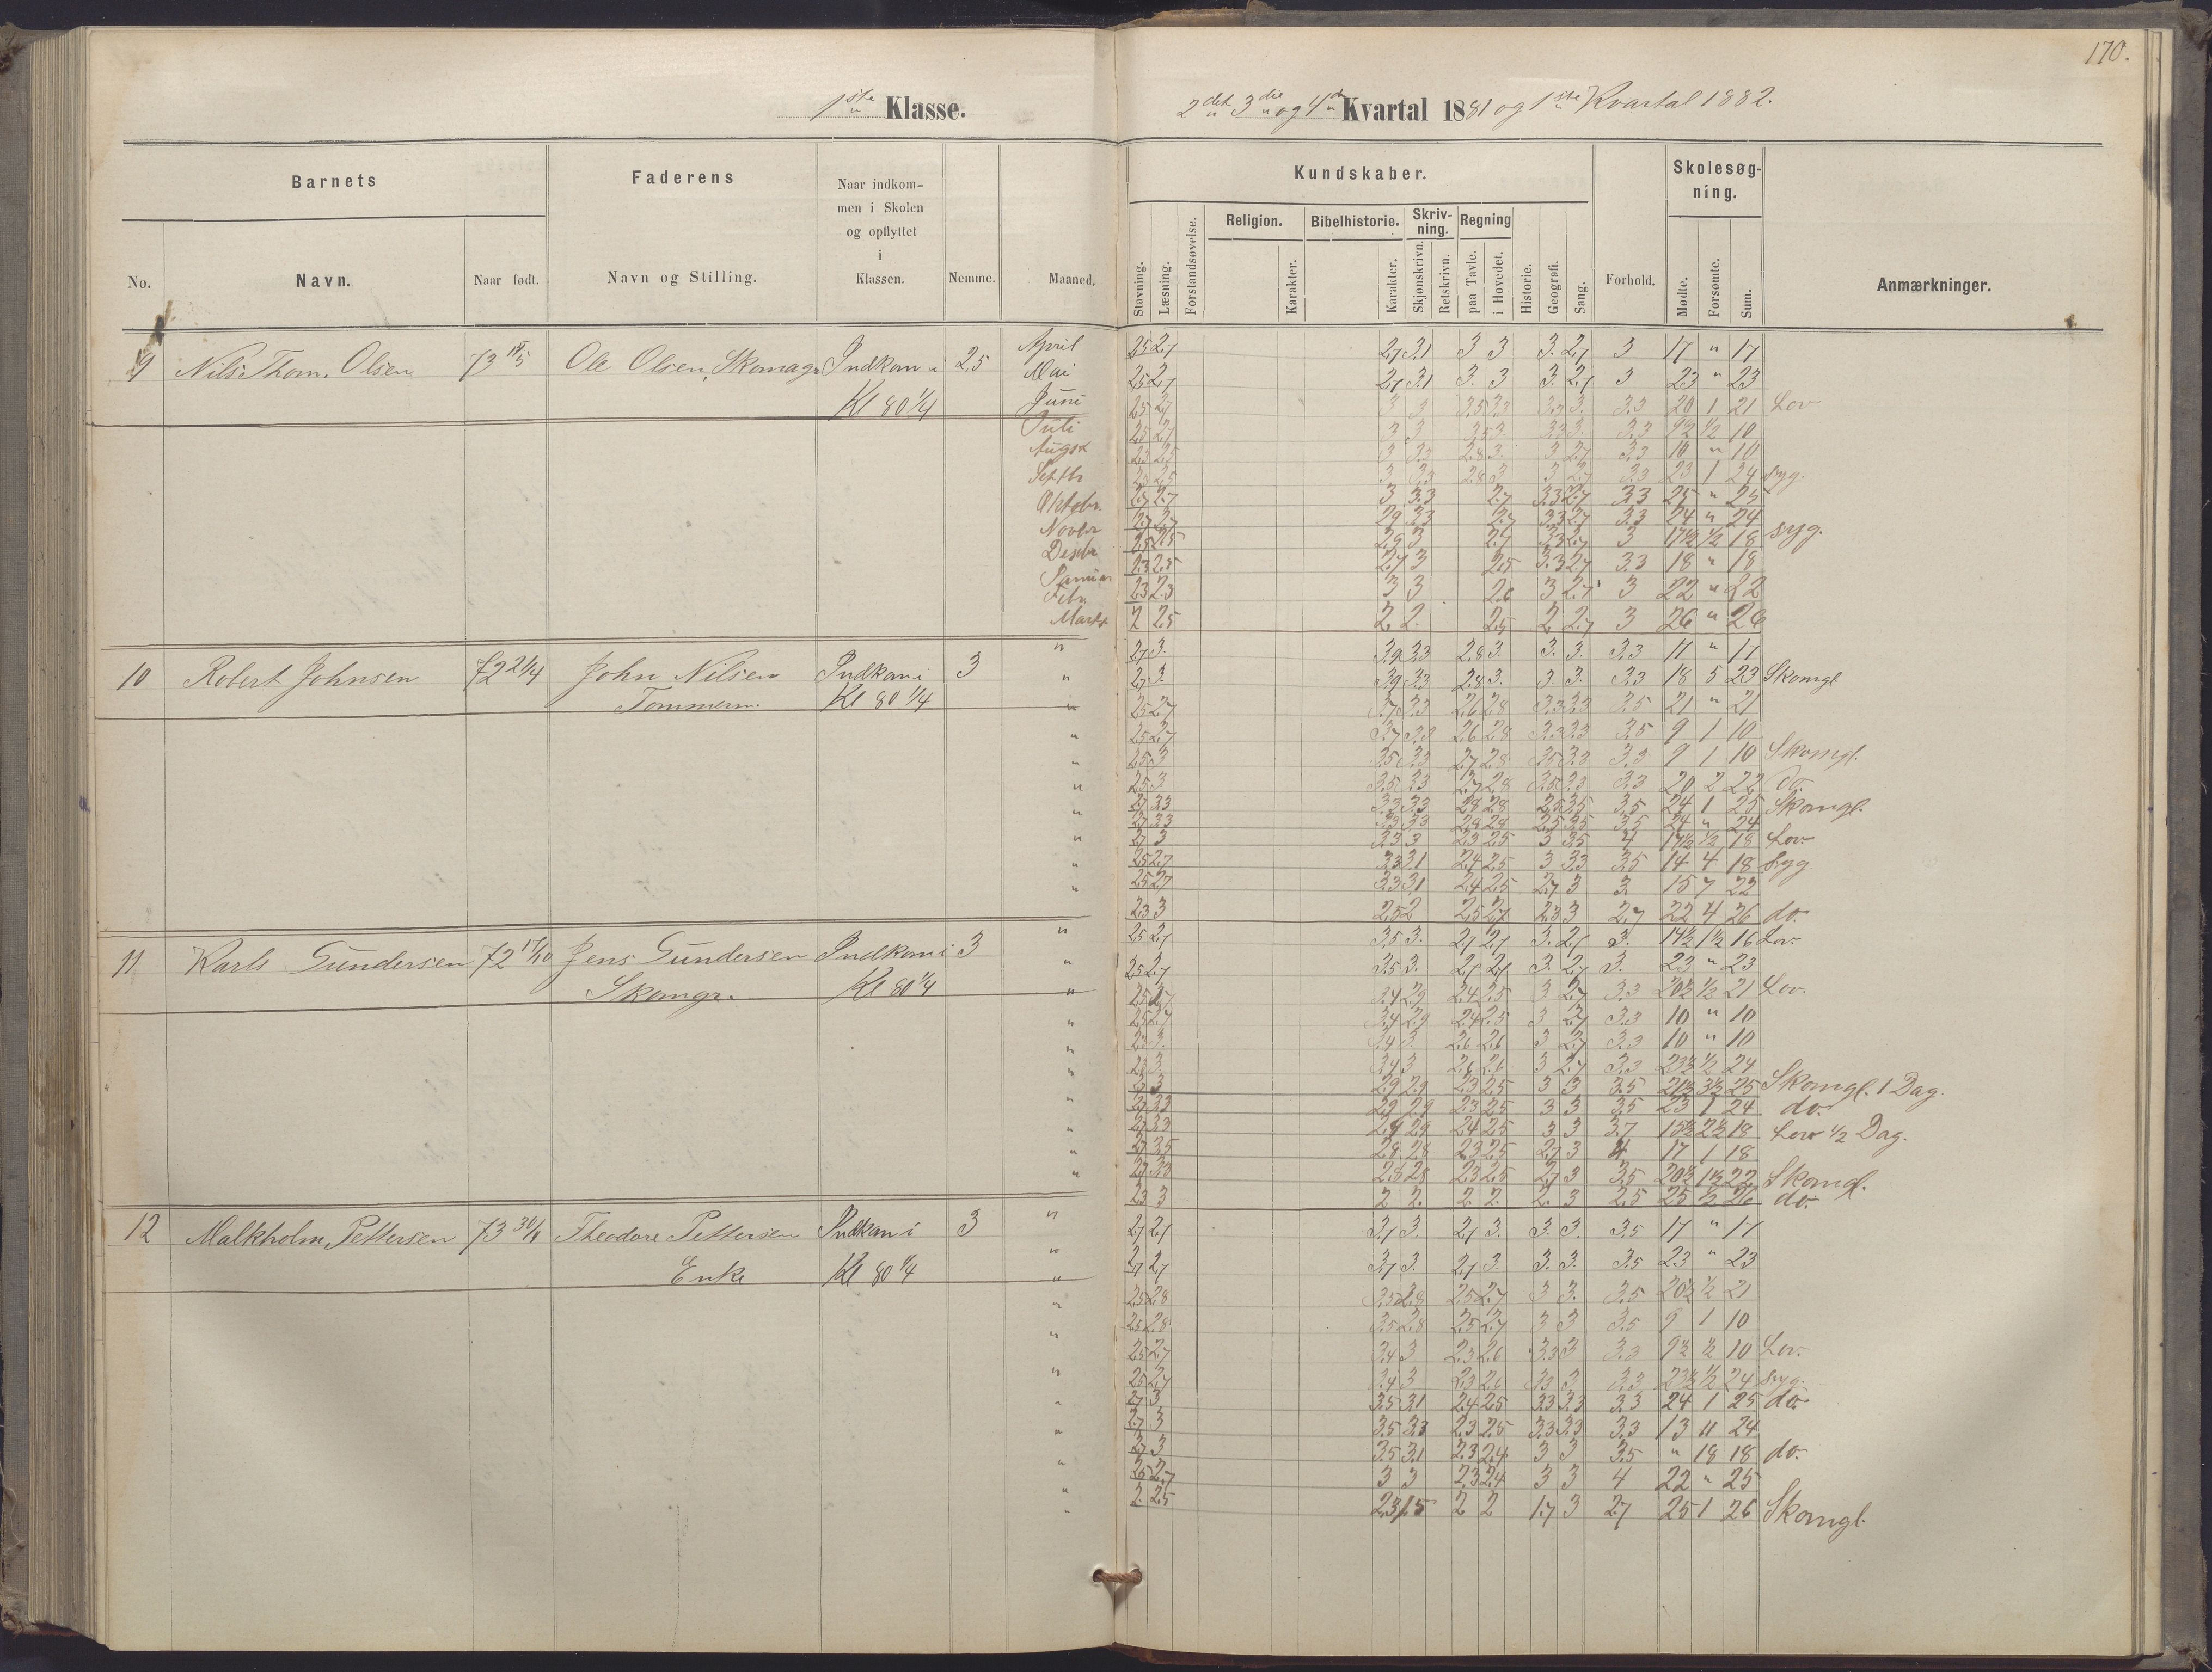 170.
1ste Klasse.
2det 3die og 4de Kvartal 1881 og 1ste Kvartal 1882.
Barnets
Faderens
Naar indkommen i Skolen og opflyttet i Klassen.
Kundskaber.
Skolesøgning.
Religion. Bibelhistorie. Skrivning. Regning
No. Navn. Naar født. Navn og Stilling. Nemme. Maaned.
Stavning. Læsning. Forstandsøvelse. Karakter. Karakter. Skjønskrivn. Retskrivn. paa Tavle. i Hovedet. Historie. Geografi. Sang. Forhold. Mødte. Forsømte. Sum. Anmærkninger.
9 Nils Thom. Olsen 73 Ole Olsen, Skomagr Indkom i 2,5
Kl 80 1/4
April 2,5 2,7 2,7 3,1 3 3 3. 2,7 3 17 " 17
Mai 2,5 2,7 2,7 3,1 3. 3 3. 2,7 3 23 " 23
Juni 2,5 2,7 3 3 3,5 3,3 3,3 3. 3,3 20 1 21 Lov
Juli 2,5 2,7 3 3 3,3 9½ ½ 10
Augst 10 " 10
Septbr 23 1 24 syg.
Oktobr. 2,7 2,7 3 3,3 2,7 3,3 2,7 3,3 25 " 25
Novbr 2,7 2,7 2,9 3,3 2,7 3,3 2,7 3,3 24 " 24
Desbr 2,5 2,5 2,9 3 2,7 3,3 2,7 3 17½ ½ 18 syg.
Januar 2,3 2,5 2,7 3 2,5 3,3 2,7 3,3 18 " 18
Febr 2,3 2,3 3 3 2,6 3 2,7 3 22 " 22
Marts 2 2,5 2 2. 2,5 2 2,7 3 26 " 26
10 Robert Johnsen 72 2/4 John Nilsen Indkom i 3
Tømmerm. Kl 80 1/4
2,7 3. 3,9 3,3 2,8 3. 3. 3. 3,3 17 " 17
2,7 3. 3,9 3,3 2,8 3. 3. 3. 3,3 18 5 23 Skomgl.
2,5 2,7 3,7 3,3 2,6 2,8 3,3 3,3 3,5 21 " 21
2,5 2,7 3,7 3,3 2,6 2,8 3,3 3,3 3,5 9 1 10
2,5 3 3,5 3,3 2,7 2,8 3,5 3,3 3,3 9 1 10 Skomgl.
2,5 3 3,5 3,3 2,7 2,8 3,5 3,3 3,3 20 2 22 do.
2,7 3,3 3,3 3,3 2,8 2,8 2,5 3,5 3,5 24 1 25 Skomgl.
2,7 3,3 3,3 3,3 2,8 2,8 2,5 3,5 3,5 24 " 24
2,7 3 3,3 3 2,3 2,5 3 3,5 4 17½ ½ 18 Lov
2,5 2,7 3,3 3,1 2,4 2,5 3 3,3 3,5 14 4 18 Syg
2,5 2,7 3,3 3,1 2,4 2,5 2,7 3 3. 15 7 22
2,3 3 2,5 2 2,5 2,7 2,3 3 2,7 22 4 26 do.
11 Karls Gundersen 72 17/10 Jens Gundersen Indkom i 3
Skomgr. Kl 80 1/4
2,5 2,7 3,5 3. 2,7 2,7 3. 2,7 3. 14½ 1½ 16 Lov.
2,5 2,7 3,5 3. 2,7 2,7 3. 2,7 3. 23 " 23
2,5 2,7 3,4 2,9 2,4 2,5 3 2,7 3,3 20½ ½ 21 Lov.
2,5 2,7 3,4 2,9 2,4 2,5 3 2,7 3,3 10 " 10
3. 3,4 3. 2,6 2,6 3 2,7 3,3 10 " 10
3. 3,4 3 2,6 2,6 3 2,7 3,3 23½ ½ 24
3 2,9 2,9 2,3 2,5 3 3 3,5 21½ 3½ 25 Skomgl. 1 Dag.
2,7 3,3 2,9 2,9 2,3 2,5 3 3 3,5 23 1 24 do.
2,7 3,3 2,9 2,9 2,4 2,5 3 3 3,7 15½ 2½ 18 Lov ½ Dag.
2,7 3,5 2,8 2,8 2,3 2,5 2,7 3 4 17 1 18
2,7 3,3 2,8 2,8 2,3 2,5 2,7 3 3,5 20½ 1½ 22 Skomgl.
2,3 3 2 2. 2. 2. 2. 3 2,5 25 ½ 26 do.
12 Malkholm Pettersen 73 Theodore Pettersen Indkom i 3
Enke Kl 80 1/4
2,7 2,7 3,7 3. 2,7 3. 3. 3. 3,5 17 " 17
2,7 2,7 3,7 3. 2,7 3. 3. 3. 3,5 23 " 23
2,5 2,8 3,5 2,8 2,5 2,7 3 3. 3,5 20½ ½ 21
2,5 2,8 3,5 2,8 2,5 2,7 3 3 3,5 9 1 10
2,5 2,7 3,4 3 2,3 2,6 3,3 3 3,3 9½ ½ 10 Lov.
2,5 2,7 3,4 3 2,3 2,6 3,3 3 3,3 23½ ½ 24 syg.
2,7 3 3,5 3,1 2,4 2,5 3,3 3,3 3,3 24 1 25 do.
2,7 3 3,5 3,3 2,3 2,5 3,3 3,3 3,3 13 11 24
2,7 3 3,5 3,1 2,3 2,4 3 3 3,5 " 18 18 do.
2,5 2,7 3 3 2,3 2,4 3 3 4 22 " 25
2. 2,5 2,3 1,5 2 2 1,7 3 2,7 25 1 26 Skomgl.